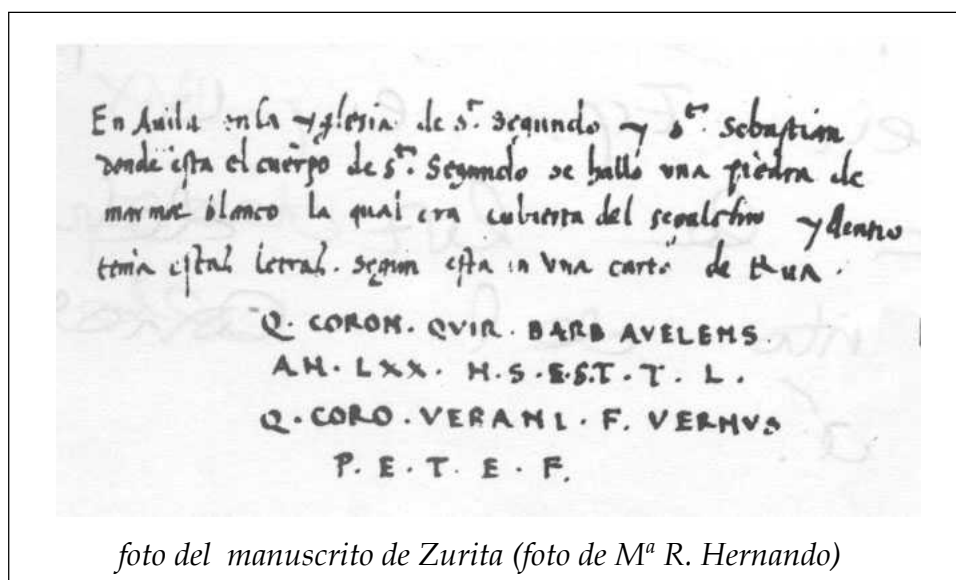 En Auila en la yglesia de s.r segundo y s.r sebastian
donde esta el cuerpo de s.r Segundo se hallo vna piedra de
marmol blanco la qual era cubierta del sepulchro y dentro
tenia estas letras. segun esta en vna carta de
Q. CORON. QVIR. BARB AVELENS.
AN. LXX. H. S. E. S. T. T. L.
Q. CORO. VERANI. F. VERNVS
P. E. T. E. F.
foto del manuscrito de Zurita (foto de Mª R. Hernando)